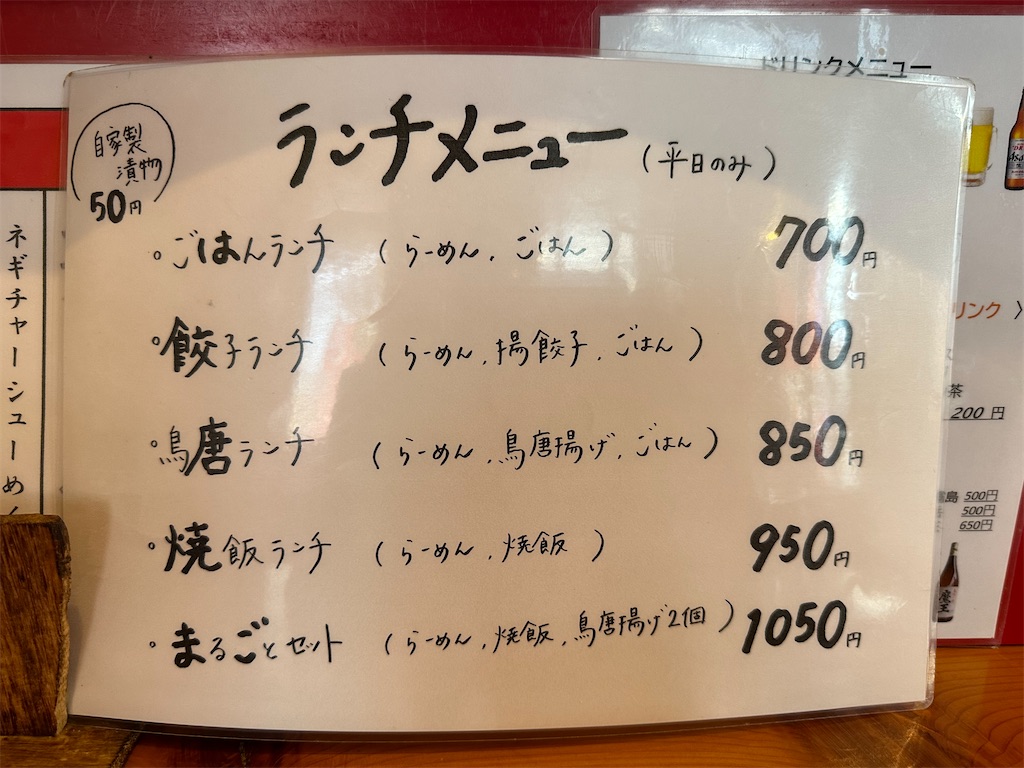 自家製
漬物
50円
ランチメニュー (平日のみ)
。ごはんランチ (らーめん、ごはん) 700円
。餃子ランチ (らーめん、揚餃子、ごはん) 800円
。鳥唐ランチ (らーめん、鳥唐揚げ、ごはん) 850円
。焼飯ランチ (らーめん、焼飯) 950円
。まるごとセット (らーめん、焼飯、鳥唐揚げ2個) 1050円
ネギチャーシューめ
ドリンクメニュー
リンク 〉
茶
200円
島 500円
500円
650円
魔王